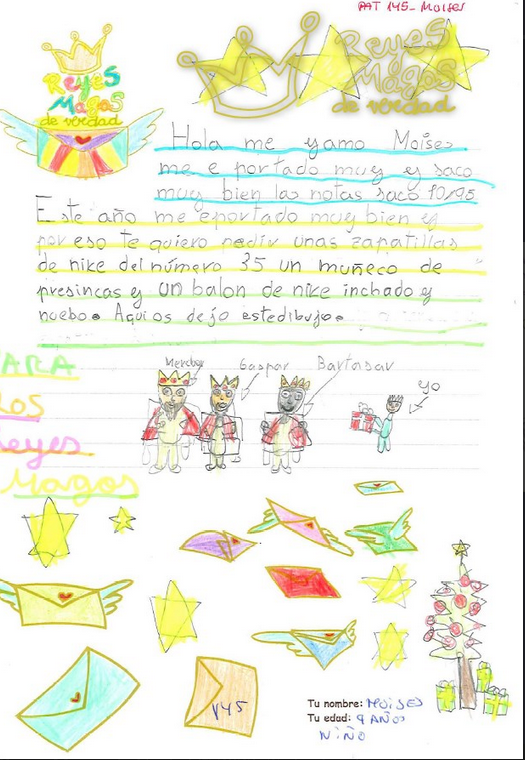 PAT 145- Moises
Reyes
Magos
de verdad
Reyes
Magos
de verdad
Hola me yamo Moises
me e portado muy y saco
muy bien las notas saco 10/95
Este año me eportado muy bien y
por eso te quiero pedir unas zapatillas
de nike del número 35 un muñeco de
presincas y un balon de nike inchado y
nuebo. Aqui os dejo este dibujo.
ARA
LOS
Reyes
Magos
Gaspar
Bartasar
yo
Tu nombre: MOISES
Tu edad: 9 AÑOS
NIÑO